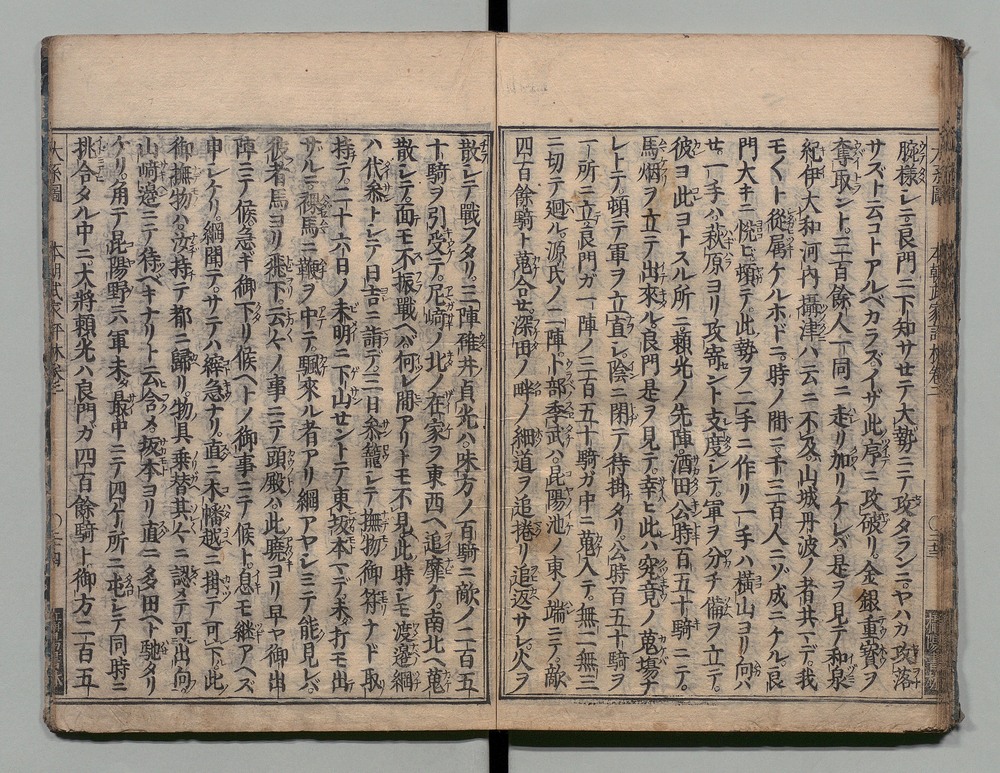 腕様シ良門ニ下知サセテ大勢ニテ攻タランニヤハカ攻落
サズト云コトアルベカラズイザ此序ニ攻破リ金銀重寳ヲ
奪取ント三百餘人一同ニ走リ加リケレバ是ヲ見テ和泉
紀伊大和河内攝津ハ云ニ不及山城丹波ノ者共マデ我
モ〱ト従屬ケルホドニ時ノ間ニ千三百人ニゾ成ニケル良
門大キニ悦ビ頓テ此勢ヲ二手ニ作リ一手ハ横山ヨリ向ハ
セ一手ハ萩原ヨリ攻寄セント支度シテ軍ヲ分チ備ヲ立テ
彼ヨ此ヨトスル所ニ頼光ノ先陣酒田公時百五十騎ニテ
馬烟ヲ立テ出來ル良門是ヲ見テ幸ヒ此ハ究竟ノ蒐塲ナ
レトテ頓テ軍ヲ立直シ陰ニ閉テ待掛タリ公時百五十騎ヲ
一所ニ立良門ガ一陣ノ三百五十騎ガ中ニ蒐入テ無二無三
ニ切テ廻ル源氏ノ二陣ト部季武ハ昆陽池ノ東ノ端ニテ敵
四百餘騎ト蒐合セ深田ノ畔ノ細道ヲ追捲リ追返サレ火ヲ
散シテ戰フタリ三陣碓井貞光ハ味方ノ百騎ニ敵ノ二百五
十騎ヲ引受テ尼﨑ノ北ノ在家ヲ東西ヘ追靡ケ南北ヘ蒐
散シテ面モ不振戰ヘバ何レ間アリトモ不見此時シモ渡邉綱
ハ代叅トシテ日吉ニ詣デ三日叅籠シテ撫物御符ナド取
持テ二十六日ノ未明ニ下山セントテ東坂本マデ未打モ出
サルニ裸馬ニ鞭ヲ中テ颿來ル者アリ綱アヤシミテ能見レバ
彼者馬ヨリ飛下云々ノ事ニテ頭殿ハ此曉ヨリ早ヤ御出
陣ニテ候急ギ御下リ候ヘトノ御事ニテ候ト息モ継アヘズ
申シケリ綱聞テサテハ縡急ナリ直ニ木幡越ニ掛テ可下此
御撫物ハ汝持テ都ニ歸リ物具乗替其々ニ認メテ可出向
山﨑邊ニテ待ベキナリト云含メ坂本ヨリ直ニ多田ヘト馳タリ
ケリ角テ昆陽野ニハ軍未最中ニテ四ケ所ニ屯シテ同時ニ
挑合タル中ニ大將頼光ハ良門ガ四百餘騎ト御方二百五
大系圖
本朝武家評林巻二
〇三四